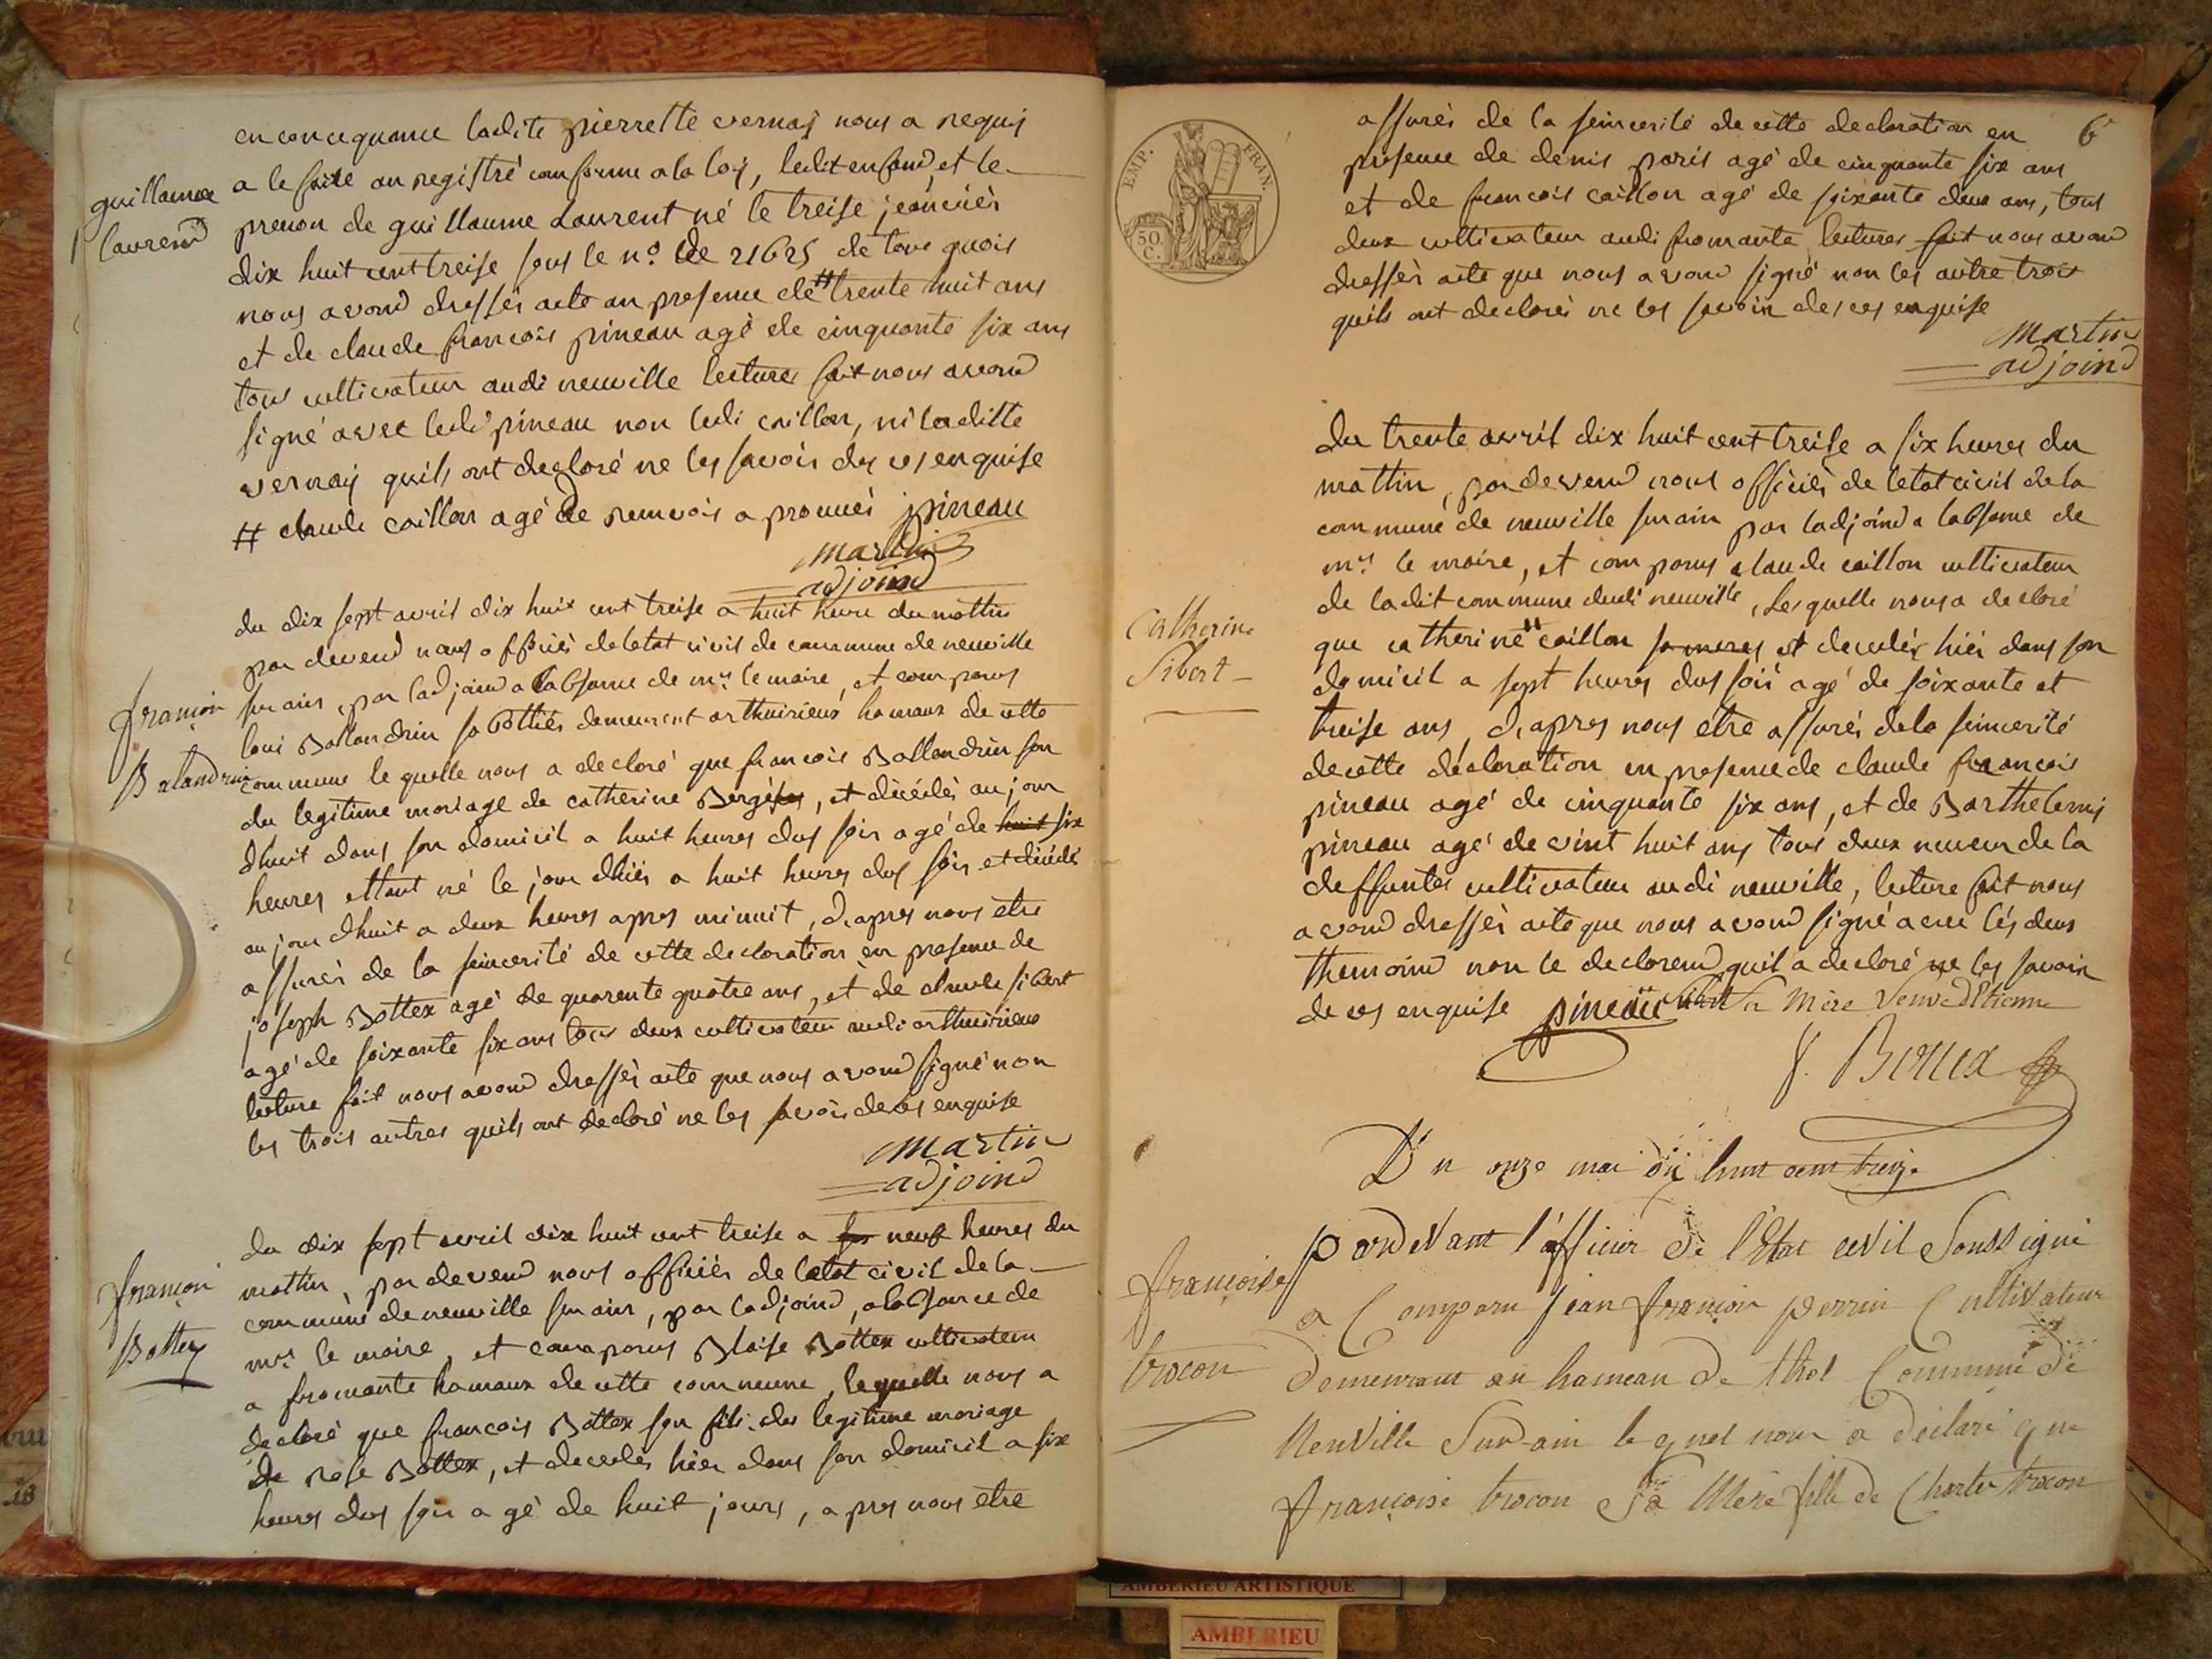 en concequance ladite pierrette vernaÿ nous a requis
a le faire anregistré conforme a la loÿ, ledit enfand et le
guillaume
laurend
prenon de guillaume Laurent né le treise jeanviér
dix huit cent treise sous le n.o de 21625 de tout quois
nous avond dressés acte an presence de # trente huit ans
et de claude francois pineau agé de cinquante six ans
tous cultivateur audi neuville lectures fait nous avond
signé avec ledi pineau non ledi caillon, ni laditte
vernaÿ quils ont decloré ne les savoir de ces enquise
# claude caillon agé de renvois a prouvés jpineau
martin
adjoind
du dix sept avril dix huit cent treise a huit heure du mattin
par devend nous officiés deletat civil de commune de neuville
françoi
Balandrin
sur ain, par ladjoind a labsance de mr. le maire, et com parus
loui Ballandrin sabottiés demeurent arthuirieux hamaux de cette
commune le quelle nous a decloré que francois Ballandrin son
du legitime mariage de catherine Bergé, et décédés aujour
dhuit dans son domicil a huit heures dus soir agé de huit six
heures ettant né le jour dhiér a huit heures dus soir et décédé
aujour dhuit a deux heures apres minuit, d, apres nous etre
assurés de la seincerité de cette decloration en presence de
joseph Bottex agé de quarente quatre ans, et de claude sibert
agé de soixante six ans tous deux cultivateur audi arthuirieux
lecture fait nous avond dressés acte que nous avond signé non
les trois autres quils ont decloré ne les savoir de ces enquise
martin
adjoind
du dix sept avril dix huit cent treise a neuf heures du
françoi
Bottex
mattin, par devend nous officiés de letat civil de la
commune de neuville sur ain, par ladjoind, alabsance de
mr. le maire, et comparus Blaise Bottex cultivateur
a fromante hamaux de cette commune, le quelle nous a
decloré que francois Bottex son fils du legitime mariage
de rose Bottex, et decedés hiér dans son domicil a six
heures dus soir agé de huit jours, apres nous etre
6e
EMP. FRAN.
50 C.
assurés de la seincerité de cette decloration en
presence de denis paris agé de cinquante six ans
et de francois caillon agé de soixante deux ans, tous
deux cultivateur audi fromante lectures fait nous avond
dressés acte que nous avond signé non les autre trois
quils ont declorés ne les savoir de ces enquise
martin
adjoind
du trente avril dix huit cent treise a six heures du
mattin, par devend nous officiés de letat civil de la
commune de neuville sur ain par ladjoind a labsance de
mr. le maire, et comparus claude caillon cultivateur
de ladit commune dudi neuville, Lequelle nous a decloré
Catherine
Sibert
que catherine " caillon sa meres et decedés hiér dans son
domicil a sept heures dus soir agé de soixante et
treise ans, d, apres nous etre assurés dela seincerité
decette decloration en presence de claude francois
pineau agé de cinquante six ans, et de Barthelemÿ
pineau agé de vint huit ans tous deux neveux de la
deffuntes cultivateur audi neuville, lecture fait nous
avond dressés acte que nous avond signé avec lés deux
themoind non le declorend quil a decloré ne les savoir
de ces enquise pineau " Sibert sa mère veuve d'Etienne
Du onze mai dix huit cent treize
pardevant l'officier de l'Etat civil Soussigné
françoise
trocon
a Comparu jean françoi perrin Cultivateur
demeurant au hameau de thol Commune de
Neuville Sur-ain lequel nous a déclaré que
françoise trocon Sa Mère fille de Charles trocon
AMBERIEU ARTISTIQUE
AMBERIEU